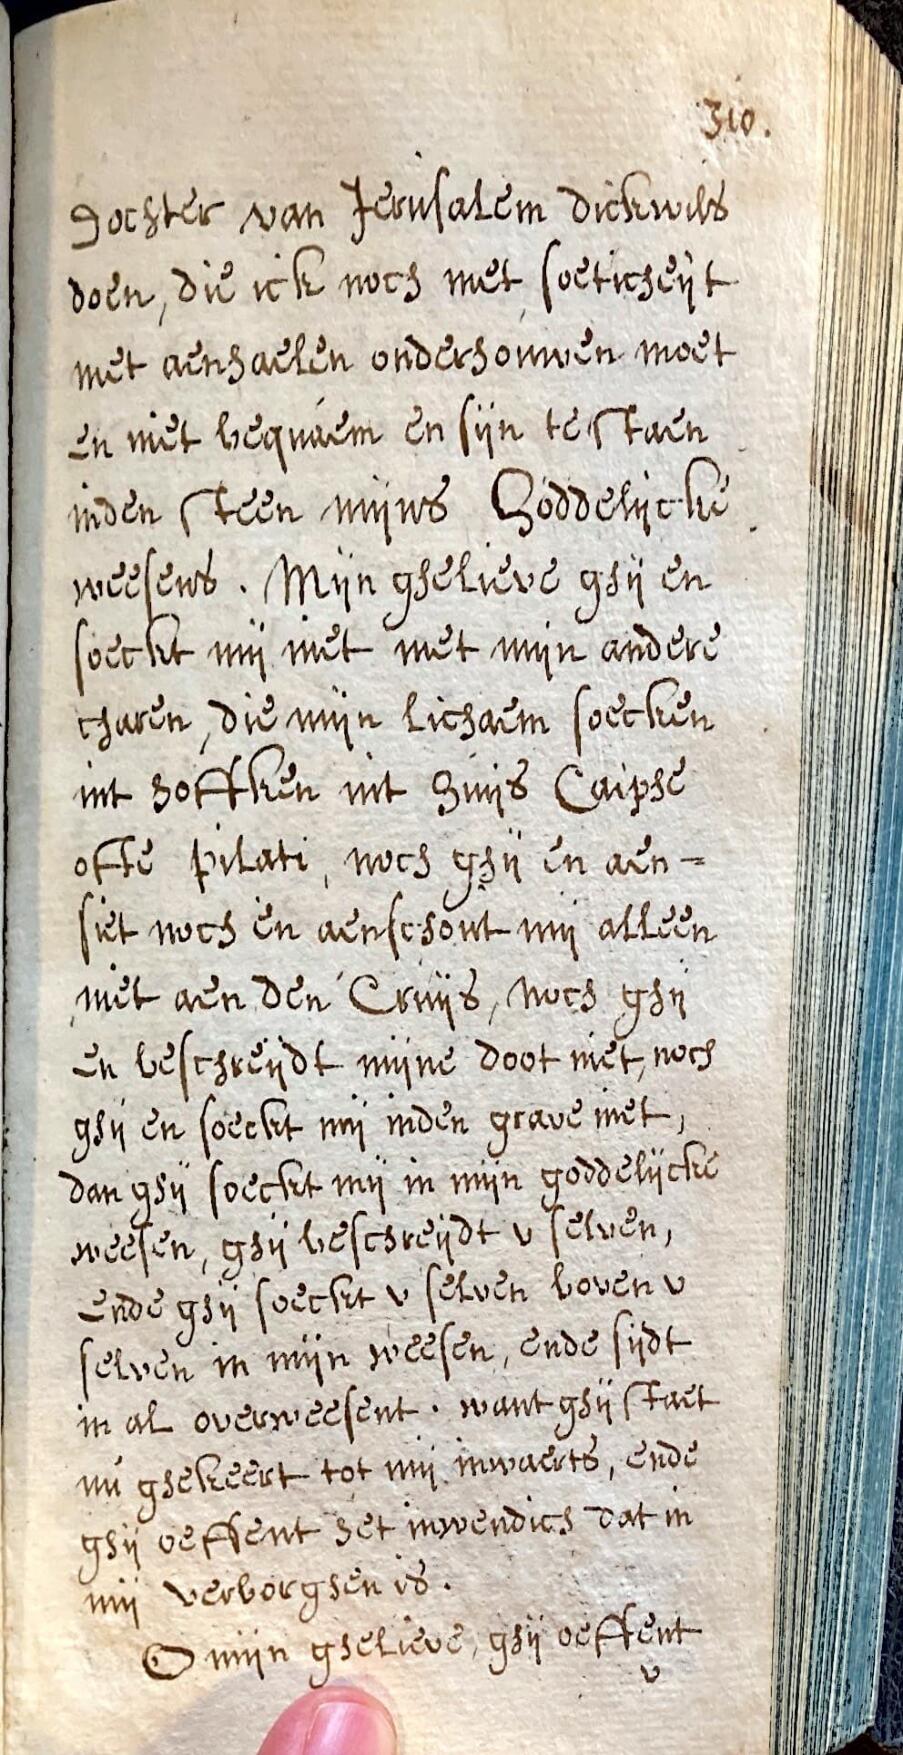 310.
Dochter van Jerusalem dickwils
doen, die ick noch met soeticheijt
met aenhaelen onderhouwen moet
en niet bequaem en sijn te staen
inden steen mijns Goddelijcke
weesens. Mijn ghelieve ghij en
soeckt mij niet met mijn andere
charen, die mijn lichaem soecken
int hoffken int huijs Caiphe
ofte pilati, noch ghij en aen=
siet noch en aenschout mij alleen
niet aen den Cruijs, noch ghij
en beschreijdt mijne doot niet, noch
ghij en soeckt mij inden grave niet,
dan ghij soeckt mij in mijn goddelijcke
weesen, ghij beschreijdt v selven,
ende ghij soeckt v selven boven v
selven in mijn weesen, ende sijdt
in al overweesent. want ghij staet
nu ghekeert tot mij inwaerts, ende
ghij oeffent het inwendich dat in
mij verborghen is.
O mijn ghelieve, ghij oeffent
v